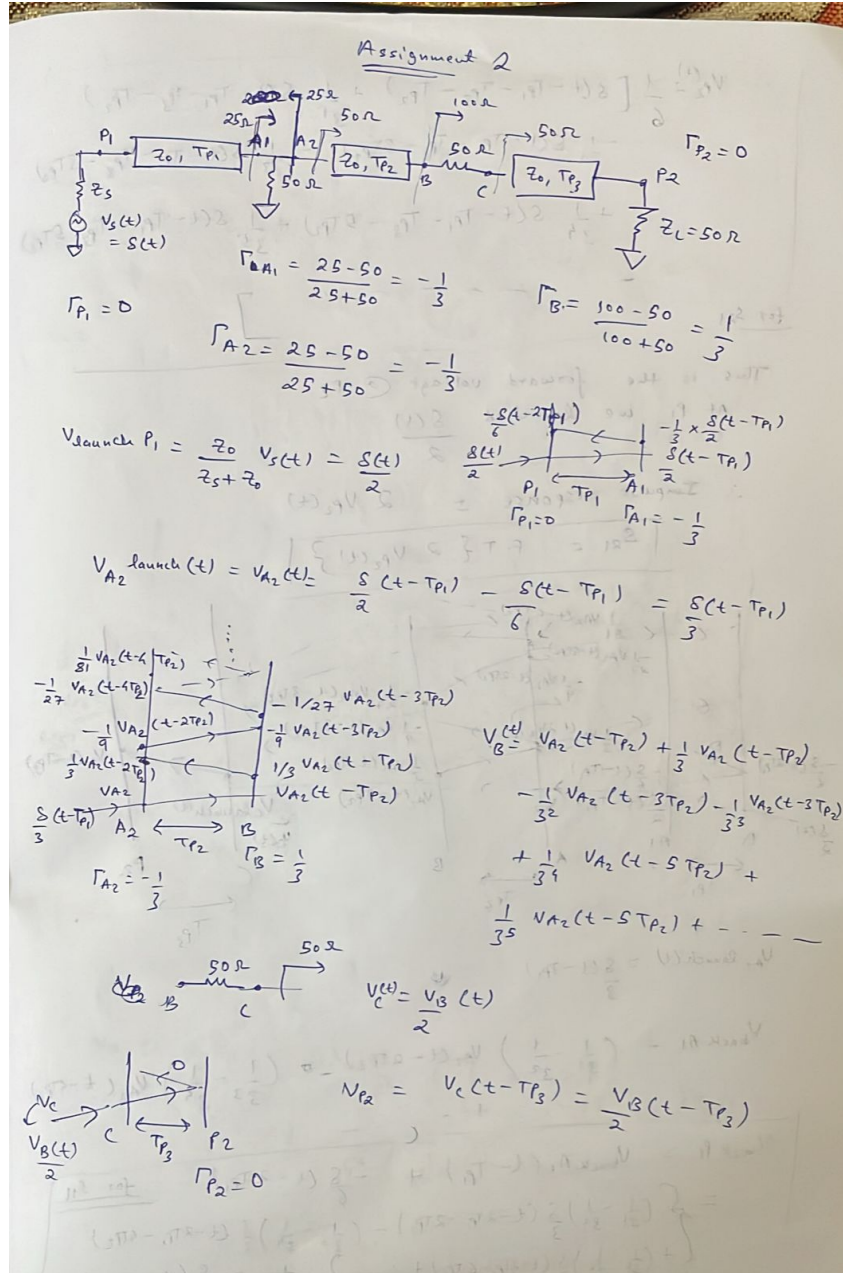 Assignment 2
25Ω
100Ω
25Ω
50Ω
50Ω
50Ω
Γ_P2 = 0
P1
Z0, TP1
A1
A2
Z0, TP2
B
C
Z0, TP3
P2
Zs
50Ω
ZL = 50Ω
Vs(t)
= δ(t)
Γ_A1 = (25-50)/(25+50) = -1/3
Γ_P1 = 0
Γ_B = (100-50)/(100+50) = 1/3
Γ_A2 = (25-50)/(25+50) = -1/3
-δ/6 (t-2TP1)
-1/3 × δ/2 (t-TP1)
Vlaunch P1 = Z0/(Zs+Z0) Vs(t) = δ(t)/2
δ(t)/2
δ/2 (t-TP1)
P1
TP1
A1
Γ_P1 = 0
Γ_A1 = -1/3
V_A2 launch (t) = V_A2(t) = δ/2 (t-TP1) - δ/6 (t-TP1) = δ/3 (t-TP1)
1/81 V_A2(t-4TP2)
-1/27 V_A2(t-4TP2)
-1/27 V_A2(t-3TP2)
-1/9 V_A2(t-2TP2)
-1/9 V_A2(t-3TP2)
1/3 V_A2(t-2TP2)
1/3 V_A2(t-TP2)
V_A2
V_A2(t-TP2)
δ/3 (t-TP1)
A2
TP2
B
Γ_A2 = -1/3
Γ_B = 1/3
V_B(t) = V_A2(t-TP2) + 1/3 V_A2(t-TP2)
- 1/3² V_A2(t-3TP2) - 1/3³ V_A2(t-3TP2)
+ 1/3⁴ V_A2(t-5TP2) +
1/3⁵ V_A2(t-5TP2) + - - -
50Ω
50Ω
B
C
V_C(t) = V_B/2 (t)
0
V_C
V_B(t)/2
C
TP3
P2
Γ_P2 = 0
V_P2 = V_C(t-TP3) = V_B/2 (t-TP3)